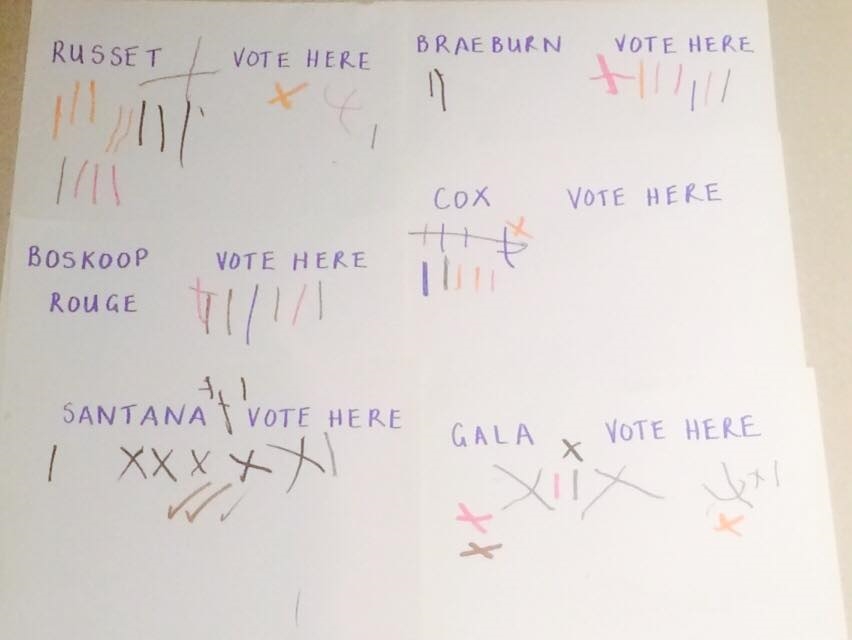 RUSSET VOTE HERE
BRAEBURN VOTE HERE
COX VOTE HERE
BOSKOOP VOTE HERE
ROUGE
SANTANA VOTE HERE
GALA VOTE HERE